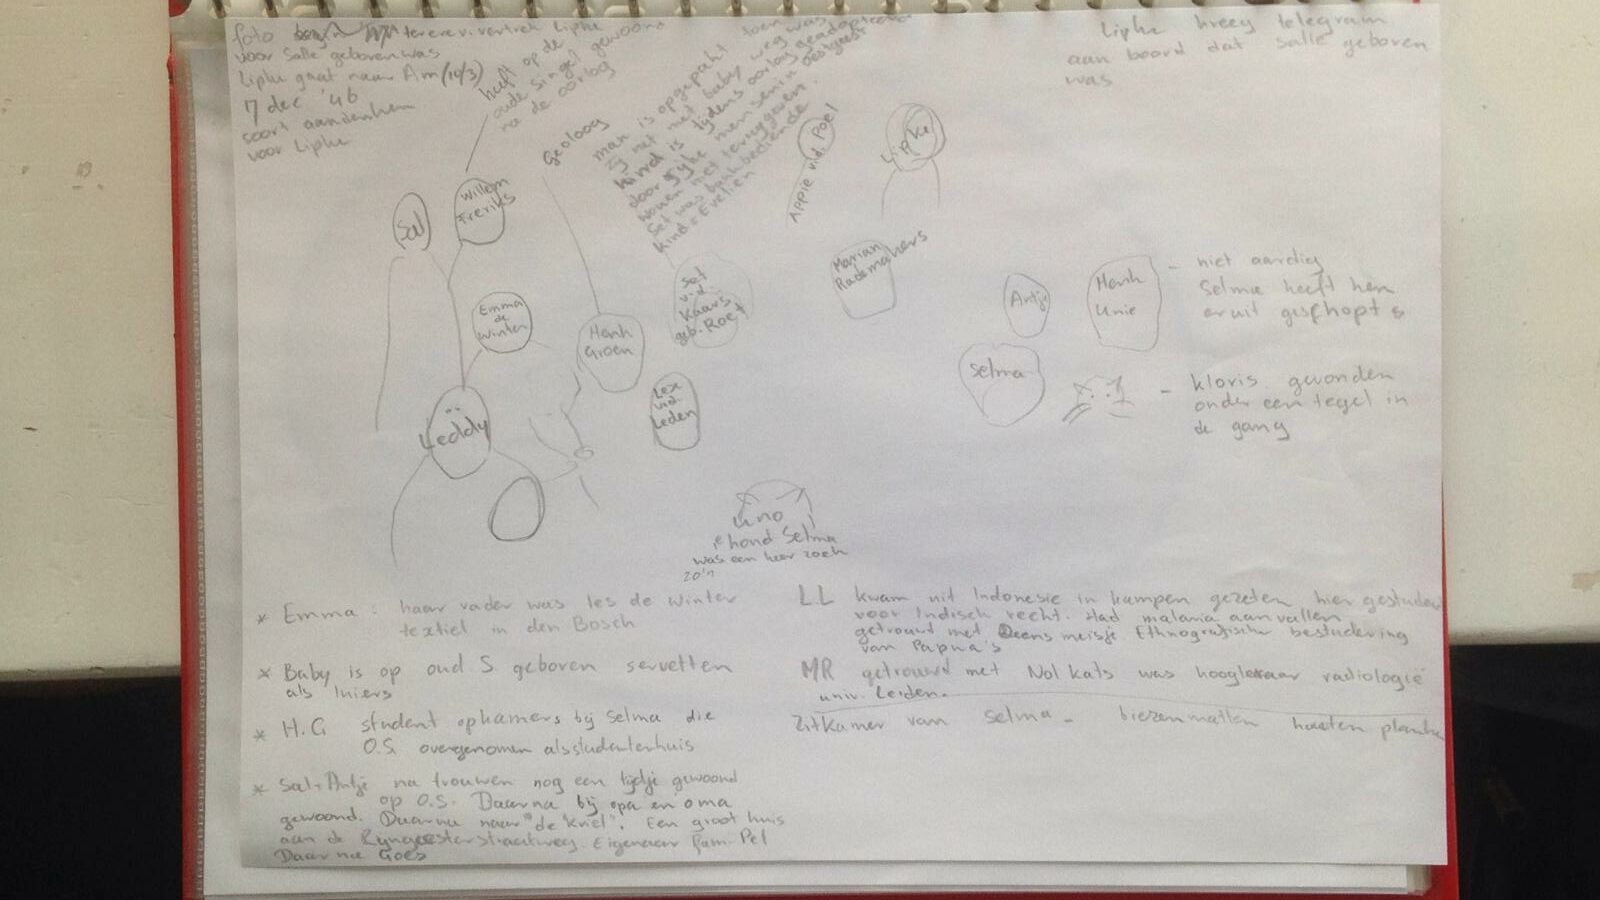 foto tere ere v. vertrek Lipke
voor Salle geboren was
Lipke gaat naar Am (10/3)
7 dec '46
soort aandenken
voor Lipke
heeft op de
oude singel gewoond
na de oorlog
geoloog
man is opgepakt toen
zij met met baby weg was
kind is tijdens oorlog geadopteerd
door rijke mensen in
wouden niet teruggeven.
Set was bankbediende
kind = Evelien
Lipke kreeg telegram
aan boord dat Salle geboren
was
Appie v.d. Poel
Lipke
Sal
Willem
Freriks
Emma
de
Winter
Henk
Groen
Set
v.d.
Kaars
geb. Roet
Marian
Rademakers
Antje
Henk
Unie
- niet aardig
Selma heeft hem
eruit geschopt
Selma
- kloris gevonden
onder een tegel in
de gang
Leddy
Lex
v.d.
Leden
uno
hond Selma
was een keer zoek
* Emma: haar vader was Ies de Winter
textiel in den Bosch
* Baby is op oud S geboren servetten
als luiers
* H.G student op kamers bij Selma die
O.S. overgenomen als studentenhuis
* Sal + Antje na trouwen nog een tijdje gewoond
op O.S. Daarna bij opa en oma
gewoond. Daarna naar "de Kriel". Een groot huis
aan de Rijngeesterstraatweg. Eigenaar fam. Pel
Daarna Goes
LL kwam uit Indonesie in kampen gezeten hier gestudeerd
voor Indisch recht. Had malaria aanvallen
getrouwd met Deens meisje. Ethnografische bestudering
van Papua's
MR getrouwd met Nol Kats was hoogleraar radiologie
univ. Leiden.
Zitkamer van Selma - biezenmatten houten planken